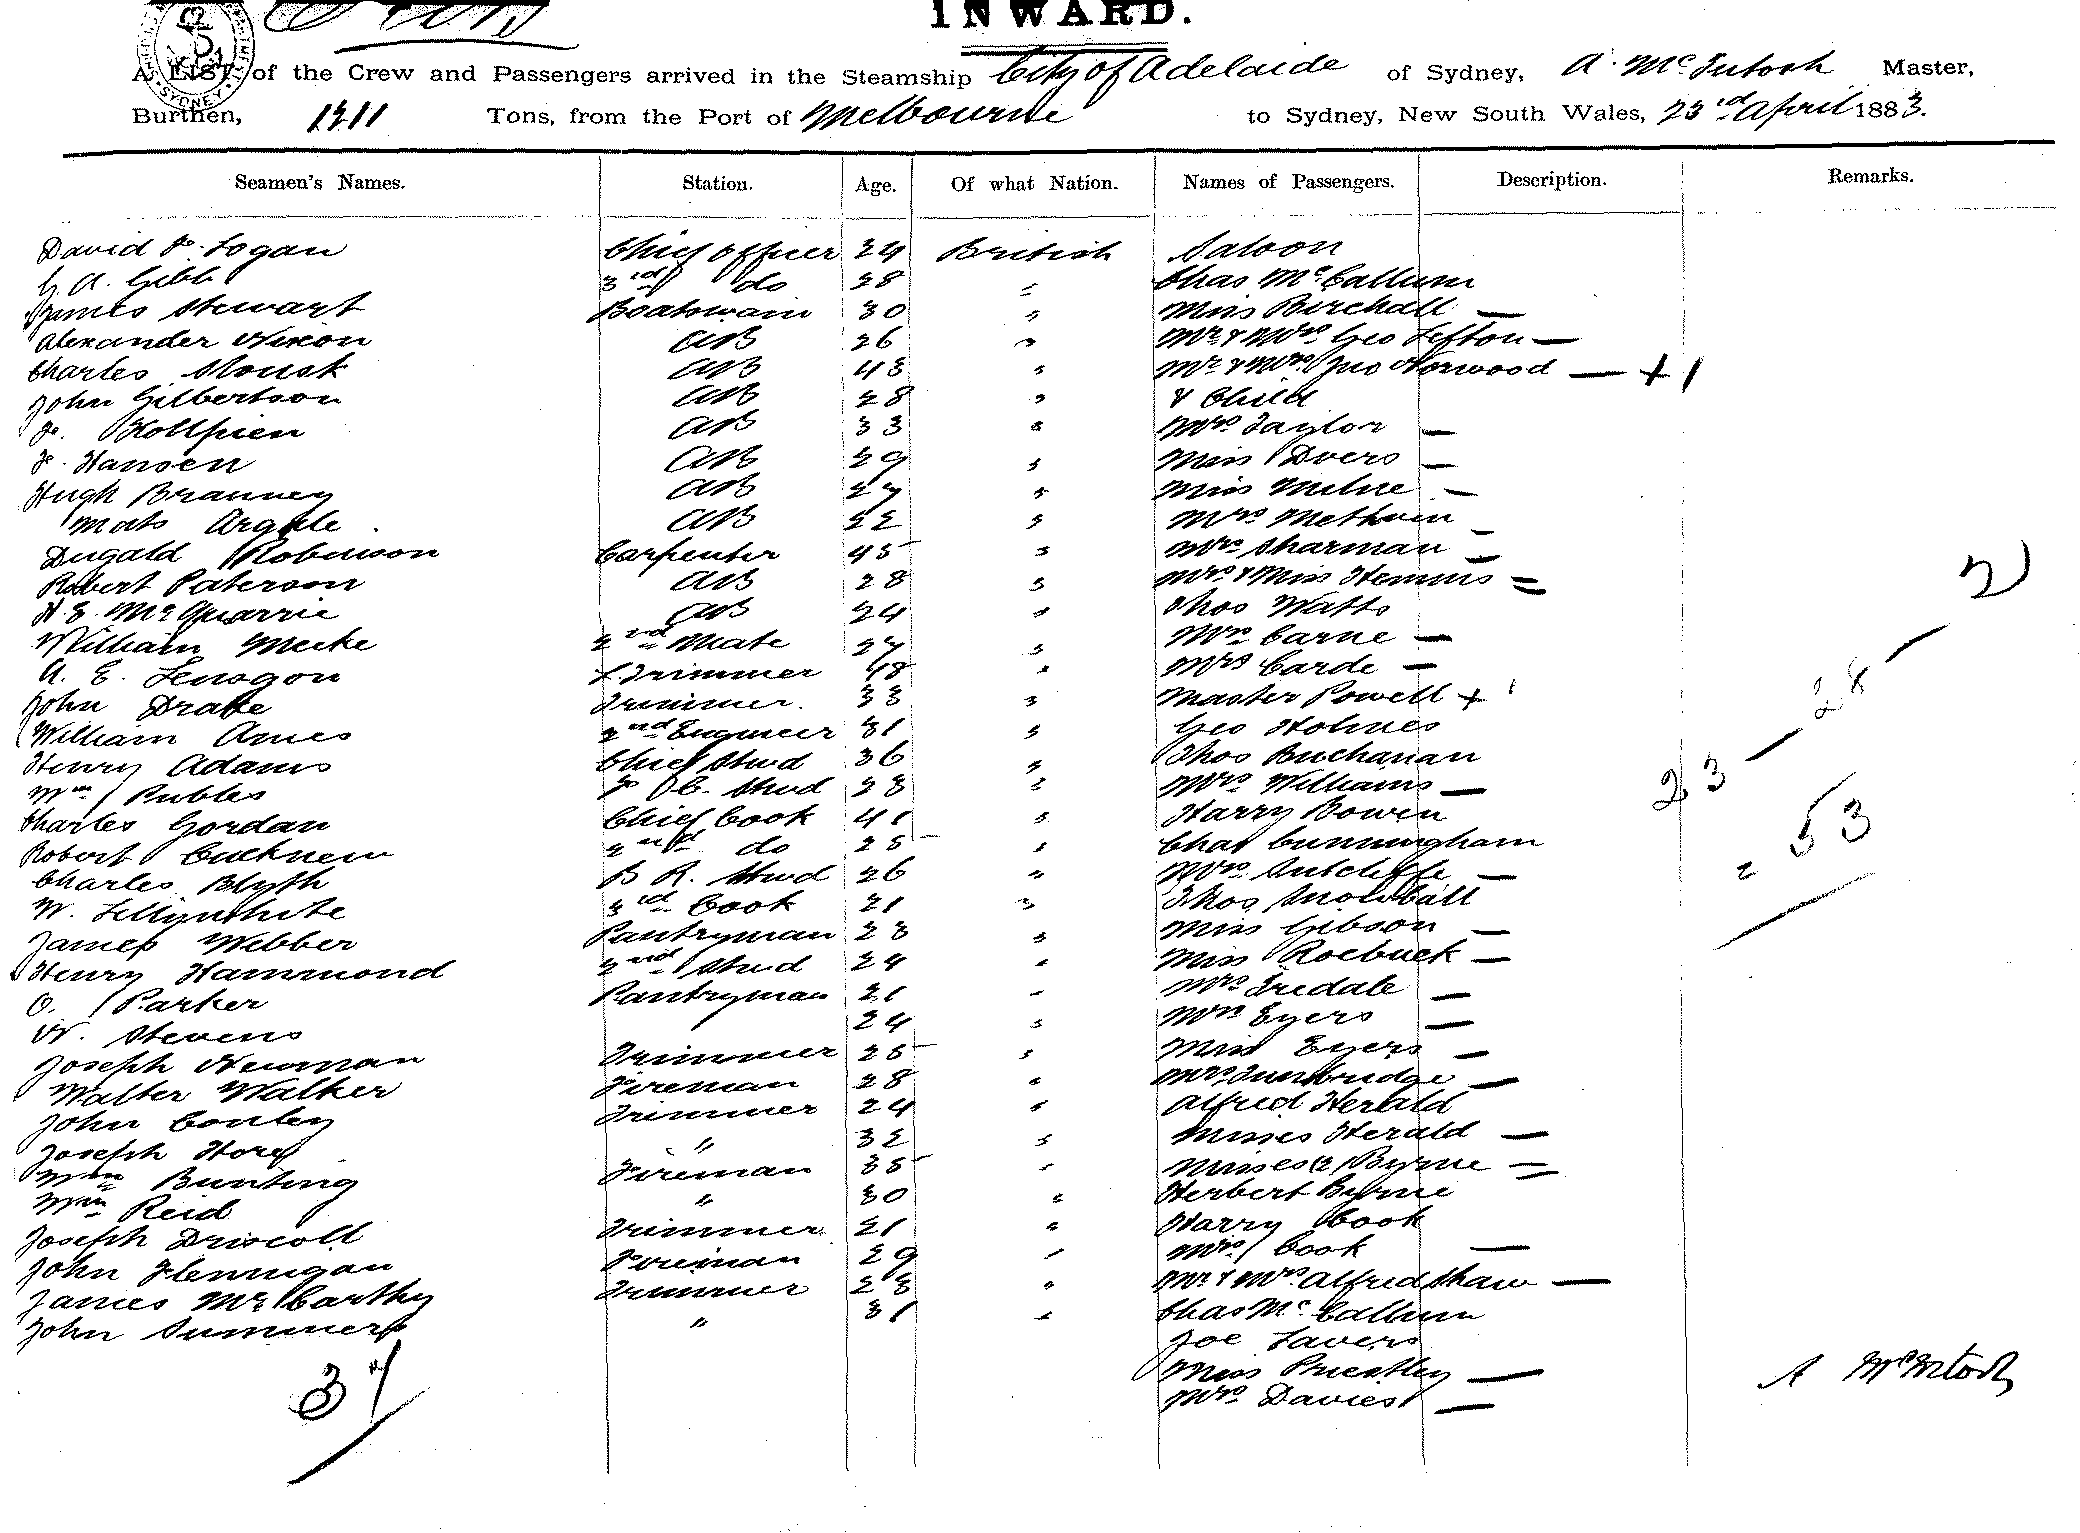 INWARD.
A LIST of the Crew and Passengers arrived in the Steamship City of Adelaide of Sydney, A. McIntosh Master,
Burthen, 1211 Tons, from the Port of Melbourne to Sydney, New South Wales, 23rd April 1883.
Seamen's Names. Station. Age. Of what Nation. Names of Passengers. Description. Remarks.
David Logan Chief Officer 24 British Saloon
G. A. Gibb 3rd do 28 " Chas McCallum
James Stewart Boatswain 30 " Miss Birchall —
Alexander Nixon AB 26 " Mr & Mrs Geo Lifton —
Charles AB 43 " Mr & Mrs Jno Norwood — + 1
John Gilbertson AB 28 " & Child
AB 33 " Mrs Taylor —
F. Hansen AB 29 " Miss —
Hugh Branney AB 27 " Miss Milne —
Mats AB 22 " Mrs Methven —
Dugald Robinson Carpenter 45 " Mrs Sharman —
Robert Paterson AB 28 " Mrs & Miss Hemms =
H. E. McQuarrie AB 24 " Thos Watts
William 2nd Mate 27 " Mrs Carne —
A. E. Trimmer 48 " Mrs Carde —
John Drake Trimmer. 33 " Master Powell + 1
William Ames 2nd Engineer 31 " Geo Holmes
Henry Adams Chief Stwd 36 " Thos Buchanan
Wm Publes F C. Stwd 23 " Mrs Williams —
Charles Gordan Chief Cook 41 " Harry Bowen
Robert 2nd do 25 " Chas Cunningham
Charles Blyth B R. Stwd 26 " Mrs Sutcliffe —
W. Lillywhite 3rd Cook 21 " Thos Snowball
James Webber Pantryman 23 " Miss Gibson —
Henry Hammond 2nd Stwd 24 " Miss Roebuck —
O. Parker Pantryman 21 " Mrs Iredale —
W. Stevens 24 " Mrs Eyers —
Joseph Newman Trimmer 25 " Miss Eyers —
Walter Walker Fireman 28 " Mrs Tunbridge —
John Conley Trimmer 24 " Alfred Herald
Joseph Hore " 32 " Misses Herald —
Wm Bunting Fireman 35 " Misses (2) Byrne =
Wm Reid " 30 " Herbert Byrne
Joseph Driscoll Trimmer 21 " Harry Cook
John Flennigan Fireman 29 " Mrs Cook —
James McCarthy Trimmer 23 " Mr & Mrs Alfred Shaw —
John Summers " 31 " Chas McCallum
Joe Lavers
Miss Priestley —
Mrs Davies —
37
2
28
23
2 53
A McIntosh